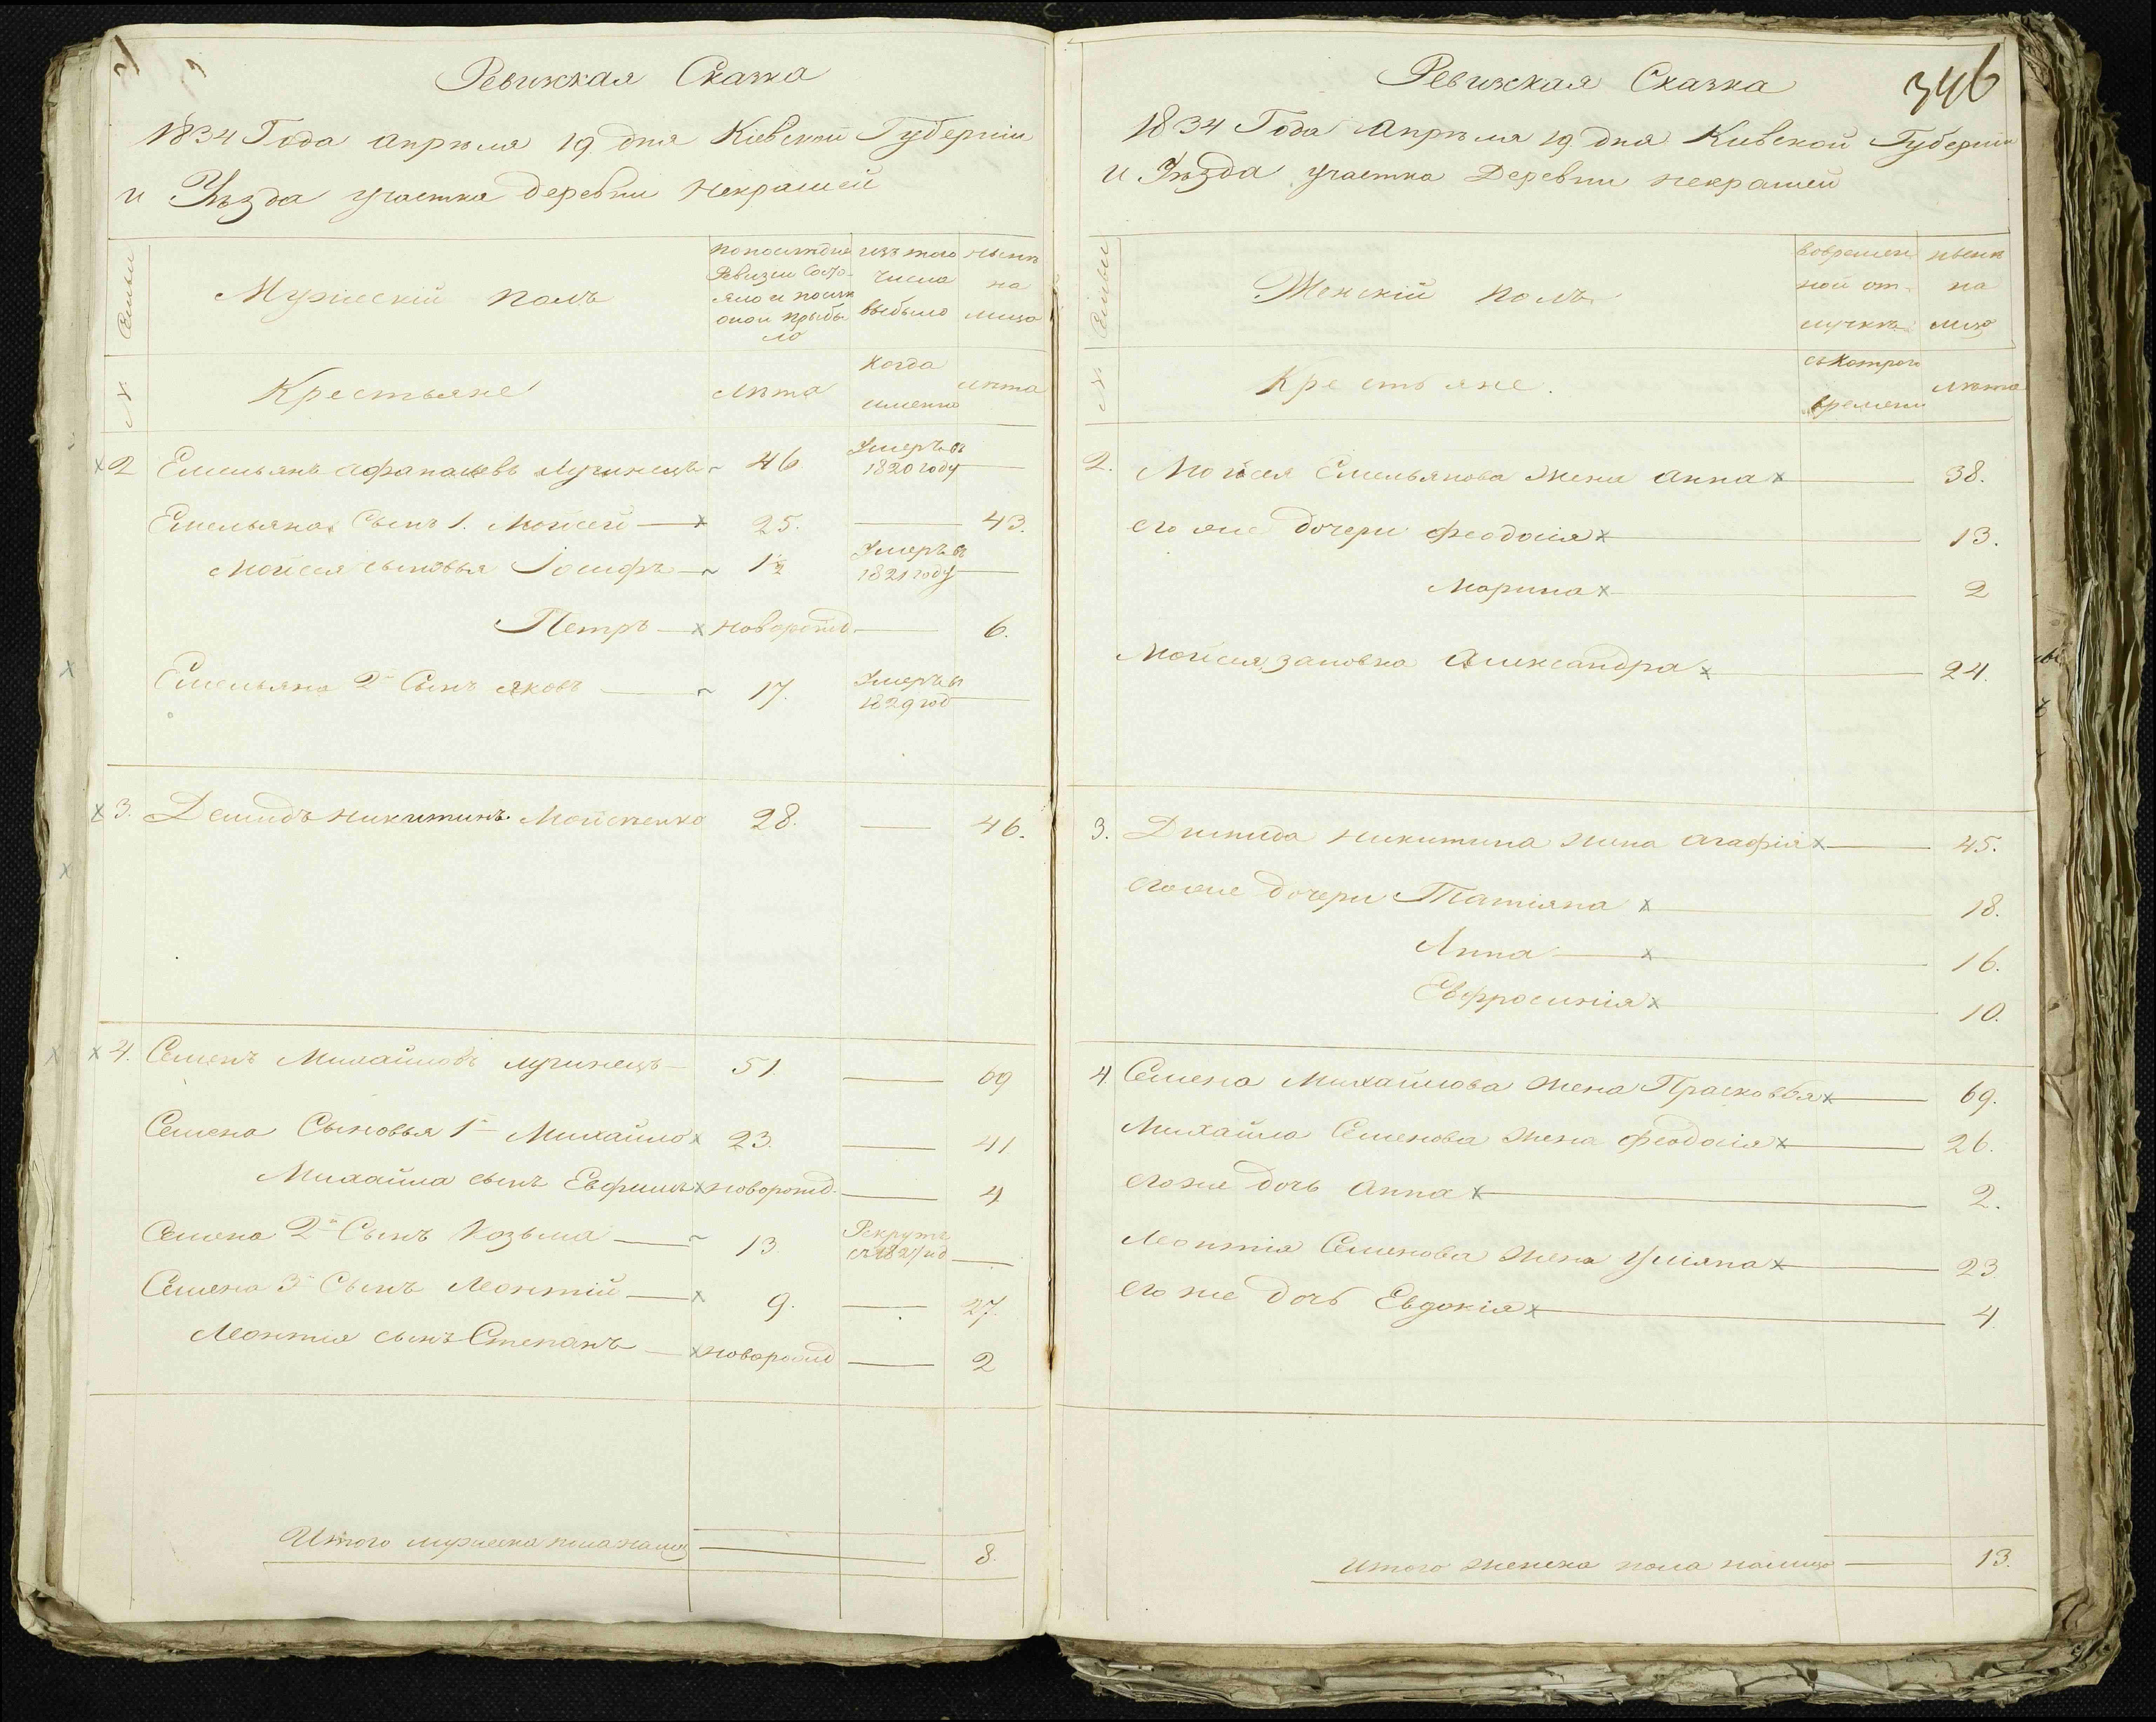 Ревижская Сказка
1834 Года апреля 19 дня Киевской Губернии
и Уѣзда участка деревни Некрашей
Семьи
Мужескій полъ
по последней ревизіи состояло и после оной прибыло
изъ того числа выбыло
ныне на лицо
№
Крестьяне
лѣта
Когда именно
лѣта
2 Емельянъ Афанасьевъ Лучинецъ 46 Умеръ в 1820 году
Емельяна Сынъ 1. Мойсей 25. 43.
Мойсея сыновья Іосифъ 1½ Умеръ в 1821 году
Петръ новорожд. 6.
Емельяна 2й Сынъ Яковъ 17. Умеръ в 1829 год
3. Демидъ Никитинъ Мойсеенко 28. 46.
4. Семенъ Михайловъ Лучинецъ 51. 69
Семена Сыновья 1й Михайло 23. 41
Михайла сынъ Евфимъ новорожд. 4
Семена 2й Сынъ Козьма 13. Рекрутъ 1827 год
Семена 3й Сынъ Леонтій 9. 27.
Леонтия сынъ Степанъ новорожд 2
Итого мужеска пола налицо 8.
346
Ревижская Сказка
1834 Года Апреля 19 дня Киевской Губернии
и Уѣзда участка Деревни Некрашей
Семьи
Женскій полъ
вовременной отлучкѣ
ныне на лицо
№
Крестьяне.
съ котораго времени
лѣта
2. Мойсея Емельянова жена Анна 38.
его же дочери Феодосія 13.
Марина 2
Мойсея золовка Александра 24.
3. Димида Никитина жена Агафія 45.
его же дочери Татіяна 18.
Анна 16.
Евфросинія 10.
4 Семена Михайлова жена Прасковья 69.
Михайла Семенова жена Феодосія 26.
его же дочь Анна 2.
Леонтія Семенова жена Уліяна 23
его же дочь Евдокія 4
Итого женска пола налицо 13.